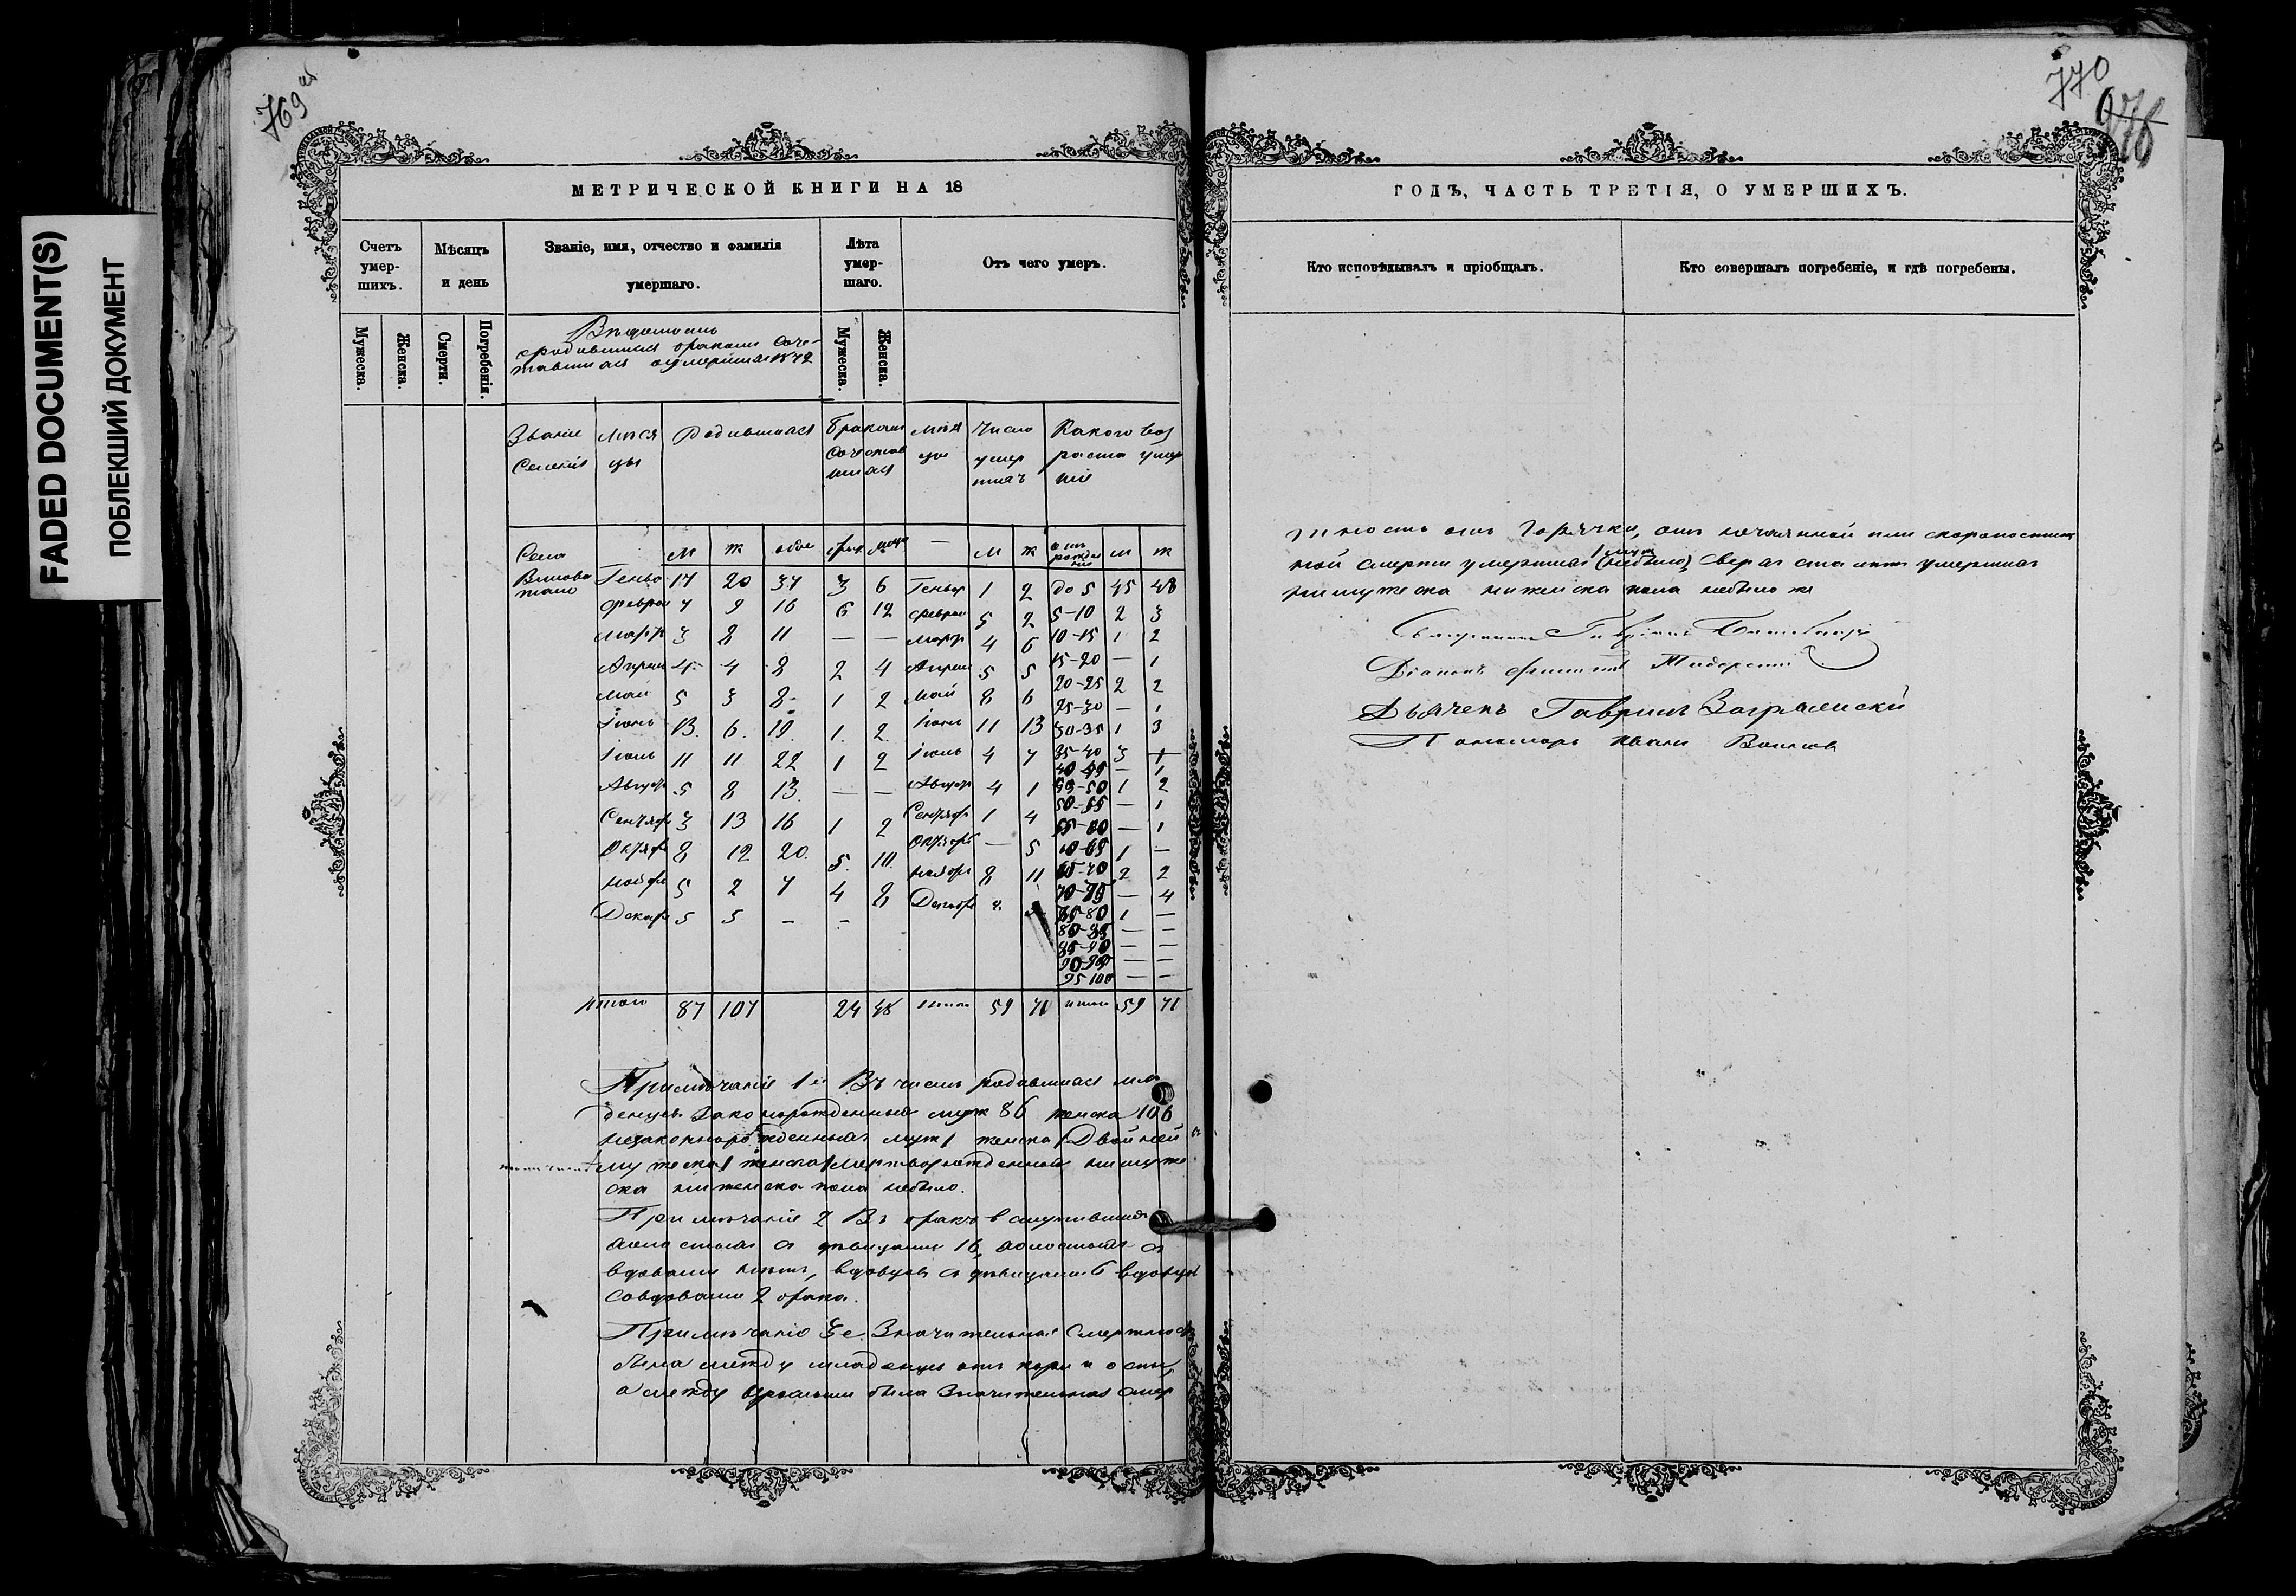 FADED DOCUMENT(S)
ПОБЛЕКШИЙ ДОКУМЕНТ
769
МЕТРИЧЕСКОЙ КНИГИ НА 18
Счетъ умер-шихъ. Мѣсяцъ и день Званіе, имя, отчество и фамилія умершаго. Лѣта умер-шаго. Отъ чего умеръ.
Мужеска. Женска. Смерти. Погребенія. Мужеска. Женска.
Вѣдомость
о родившихся бракомъ соче-
тавшихся и умершихъ 1872
Званіе мѣся Родившихся бракомъ мѣся Число Какого воз
Селенія цы сочетав цы умер раста умер
шихся шихъ шіе
Села м ж обое м ж отъ рожденія м ж
Геньв 17 20 37 3 6 Геньвр 1 2 до 5 45 48
Феврал 7 9 16 6 12 Феврал 5 2 5-10 2 3
Мартъ 3 8 11 — — Мартъ 4 6 10-15 1 2
Апрѣл 4 4 8 2 4 Апрѣл 5 5 15-20 — 1
20-25 2 2
Май 5 3 8 1 2 Май 8 6 25-30 — 1
Іюнь 13. 6. 19. 1. 2. Іюнь 11 13 30-35 1 3
Іюль 11 11 22 1 2 Іюль 4 7 35-40 3 1
40-45 — 1
Август 5 8 13. — — Август 4 1 45-50 1 2
50-55 — 1
Сентяб 3 13 16 1 2 Сентяб 1 4 55-60 — 1
Октяб 8 12 20. 5. 10 Октяб — 5 60-65 1 —
Нояб 5 2 7 4 8 Нояб 8 11 65-70 2 2
70-75 — 4
Декаб 5 5 — — Декаб 8. 75-80 1 —
80-85 — —
85-90 — —
90-95 — —
95-100 — —
Итого 87 107 24 48 Итого 59 71 итого 59 71
Примѣчаніе 1е Въ числѣ родившихся мла
денцевъ законорожденныхъ муж 86 женска 106
незаконнорожденныхъ муж 1 женска 1 Двойней
мужеска 1 женска 1 мертворожденныхъ ни муже
ска ни женска пола небыло.
Примѣчаніе 2 Въ бракъ вступившихъ
холостыхъ съ дѣвицами 16, холостыхъ съ
вдовами нѣтъ, вдовцовъ съ дѣвицами 6 вдовцы
со вдовами 2 брака.
Примѣчаніе 3е. Значительная Смертность
была между младенцы отъ кори и оспы
а между взрослыми была Значительная смер
770
ГОДЪ, ЧАСТЬ ТРЕТІЯ, О УМЕРШИХЪ.
Кто исповѣдывалъ и пріобщалъ. Кто совершалъ погребеніе, и гдѣ погребены.
тность отъ Горячки, отъ нечаянной или скоропостиж
ной смерти умершихъ 1 муж (небыло) Сверхъ ста лѣтъ умершихъ
ни мужеска ни женска пола небыло
Священникъ
Діаконъ
Дьячекъ Гавріилъ
Пономарь Иванъ